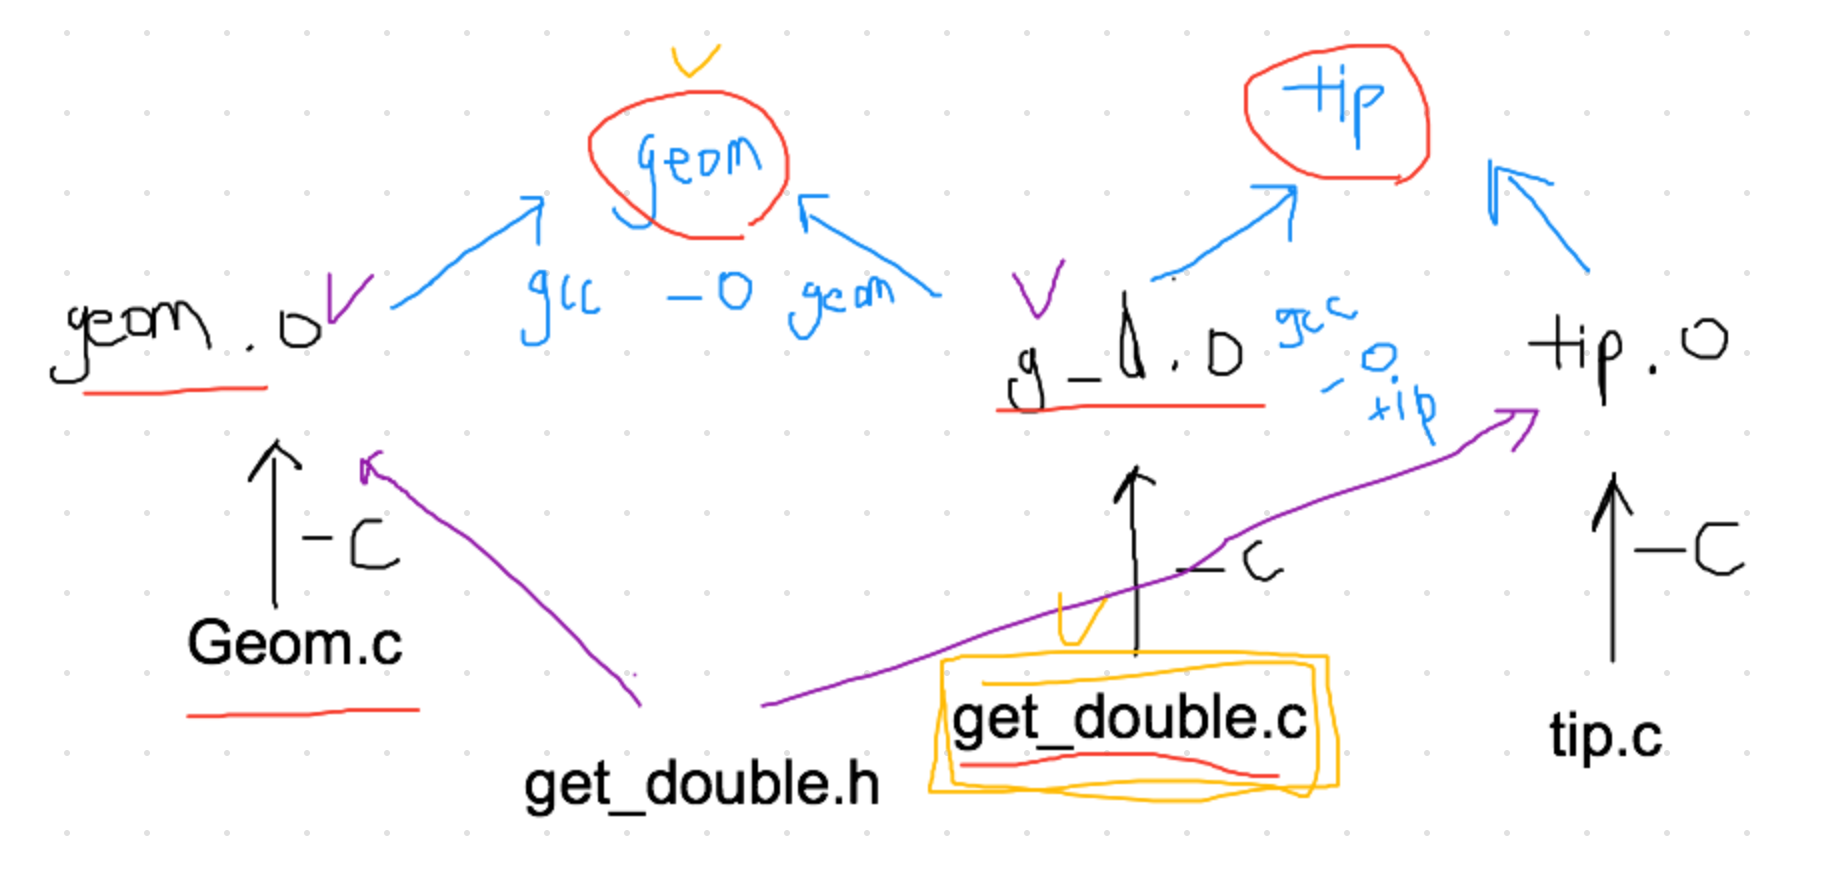 tip
geom
gcc -o geom
geom.o
g_d.o
gcc
-o
tip
tip.o
-c
-c
-c
Geom.c
get_double.c
tip.c
get_double.h